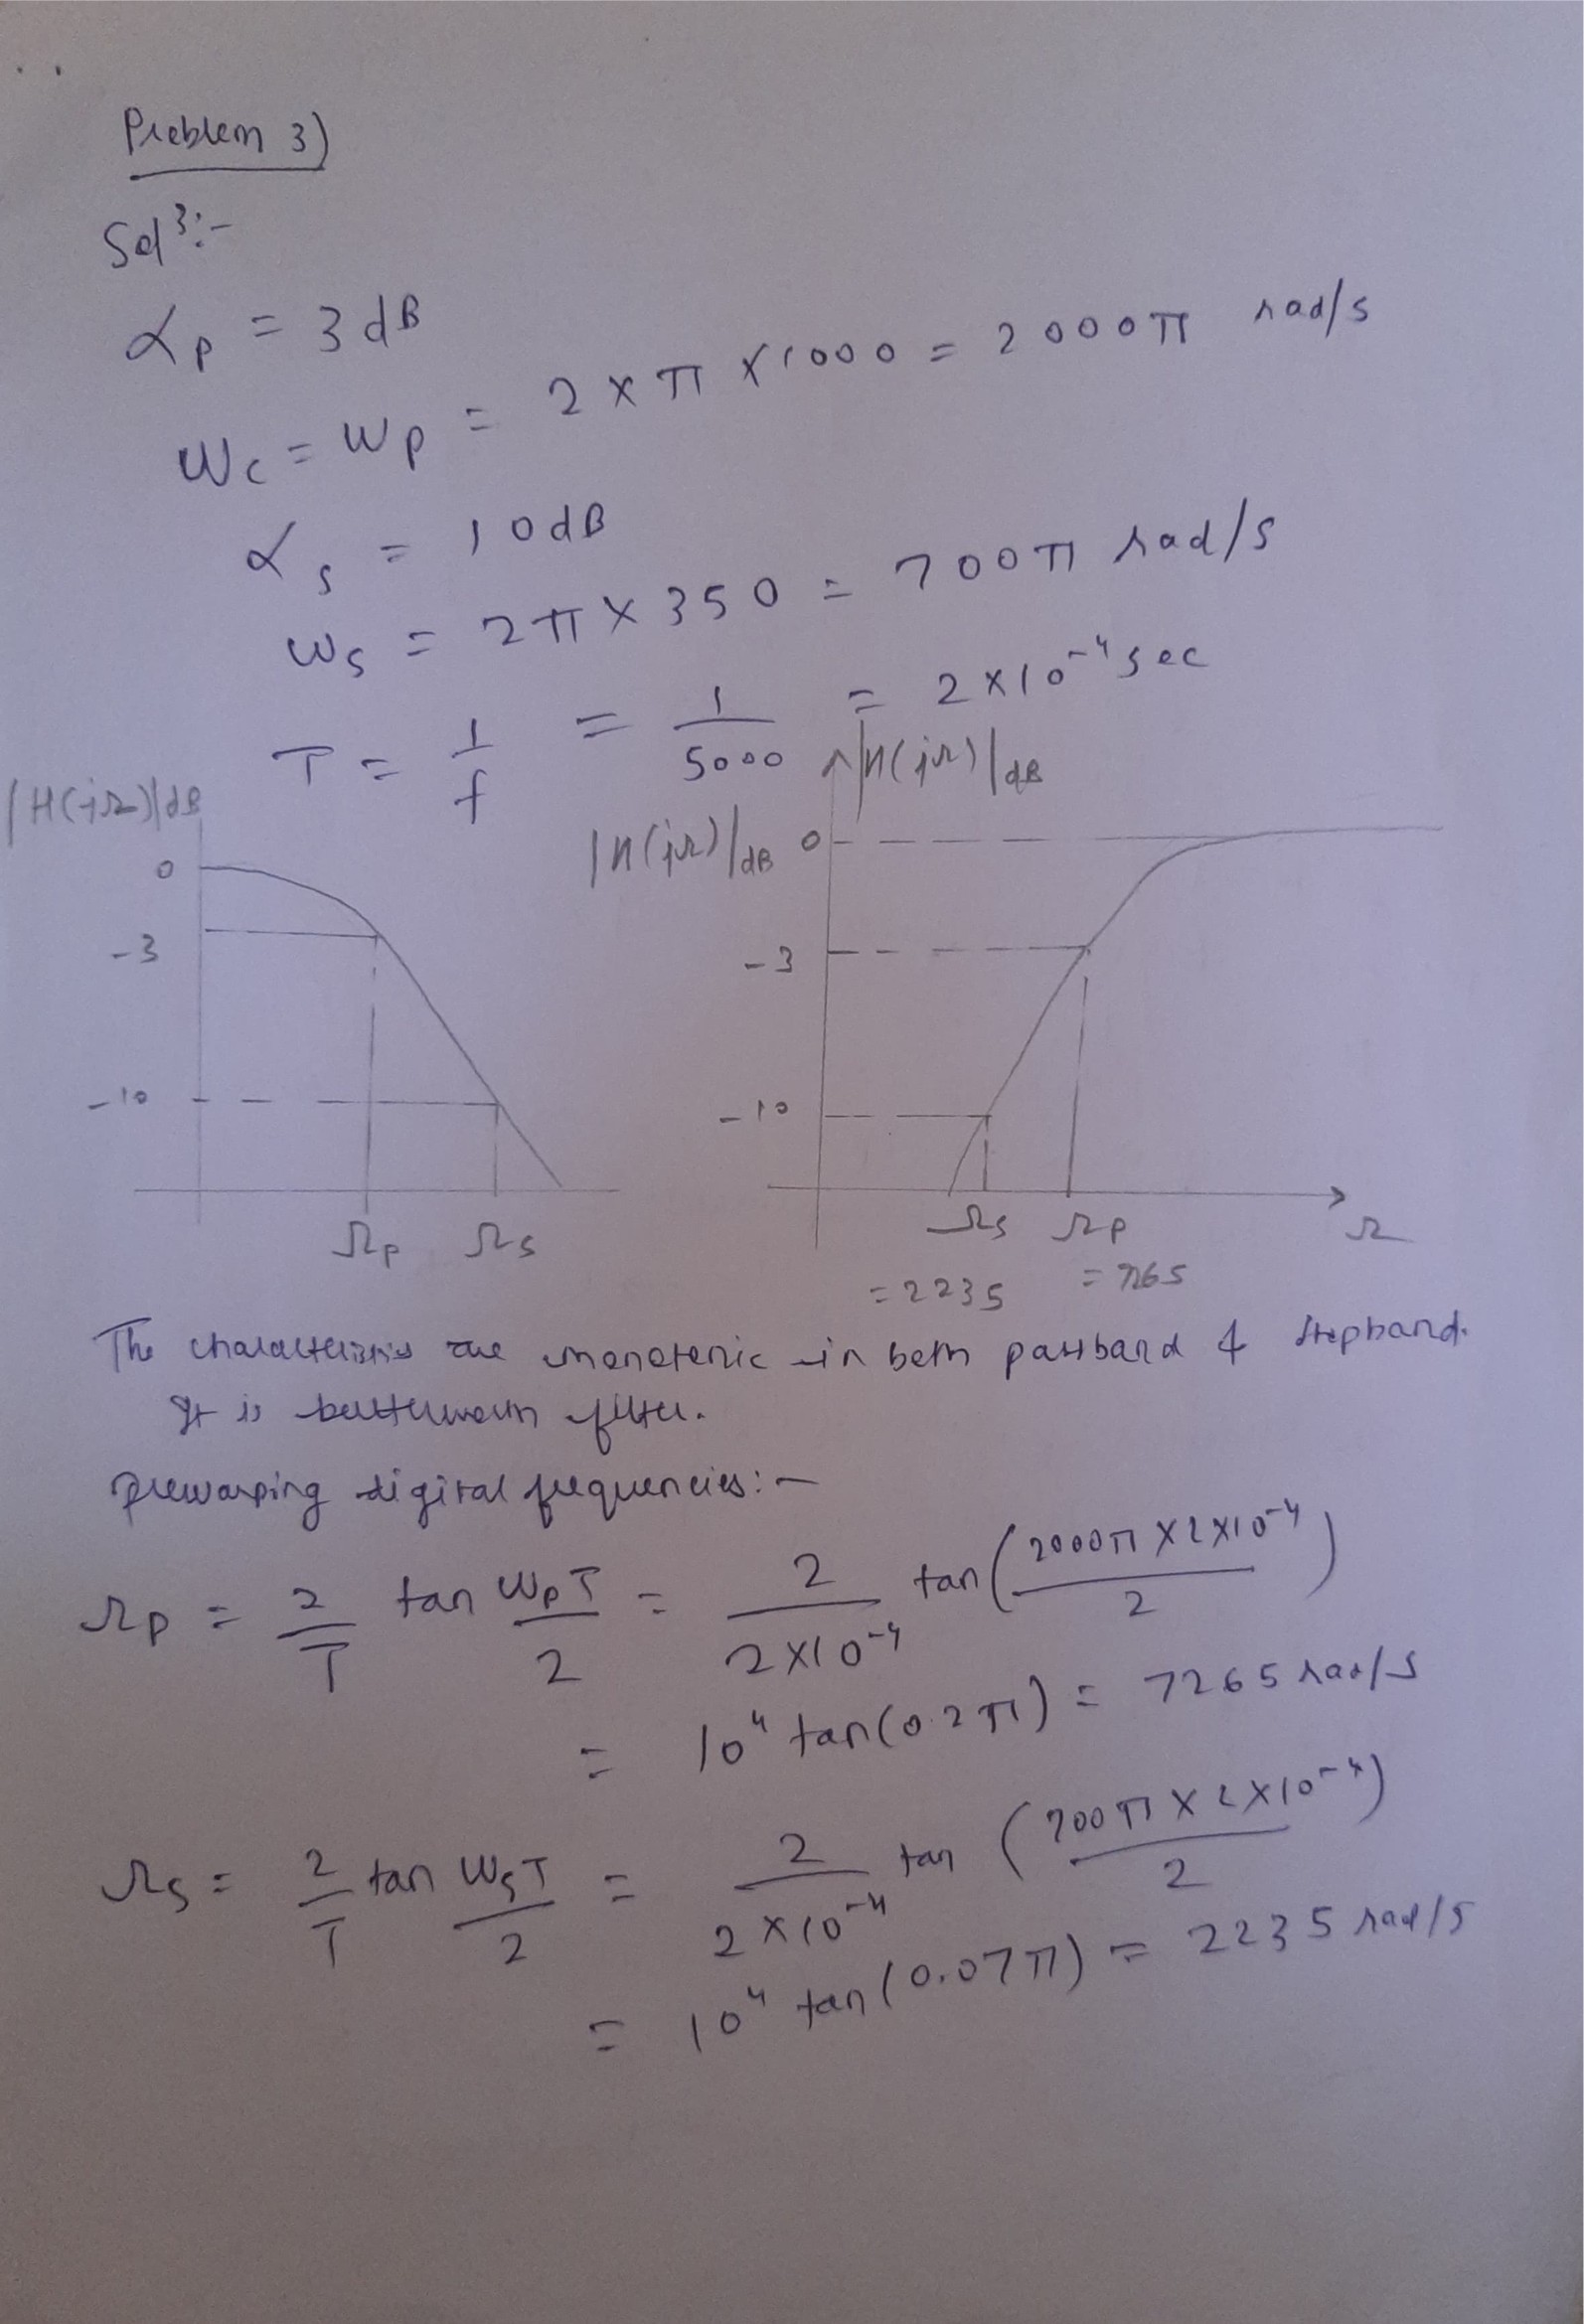 Problem 3)
Sol³:-
αp = 3 dB
Wc = Wp = 2 × π × 1000 = 2000π rad/s
αs = 10dB
Ws = 2π × 350 = 700π rad/s
T = 1/f = 1/5000 = 2×10⁻⁴ sec
|H(jΩ)|dB
0
-3
-10
Ωp Ωs
|H(jΩ)|dB
|H(jΩ)|dB 0
-3
-10
Ωs Ωp Ω
=2235 = 7265
The characteristics are monotonic in both passband & stopband.
It is butterworth filter.
prewarping digital frequencies:-
Ωp = 2/T tan WpT/2 = 2/(2×10⁻⁴) tan(2000π×2×10⁻⁴/2)
= 10⁴ tan(0.2π) = 7265 rad/s
Ωs = 2/T tan WsT/2 = 2/(2×10⁻⁴) tan (700π×2×10⁻⁴/2)
= 10⁴ tan(0.07π) = 2235 rad/s